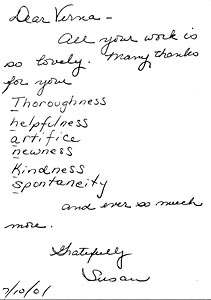 Dear Verna -
All your work is
so lovely. Many thanks
for your
Thoroughness
helpfulness
artifice
newness
Kindness
spontaneity
and ever so much
more.
Gratefully
Susan
7/10/01